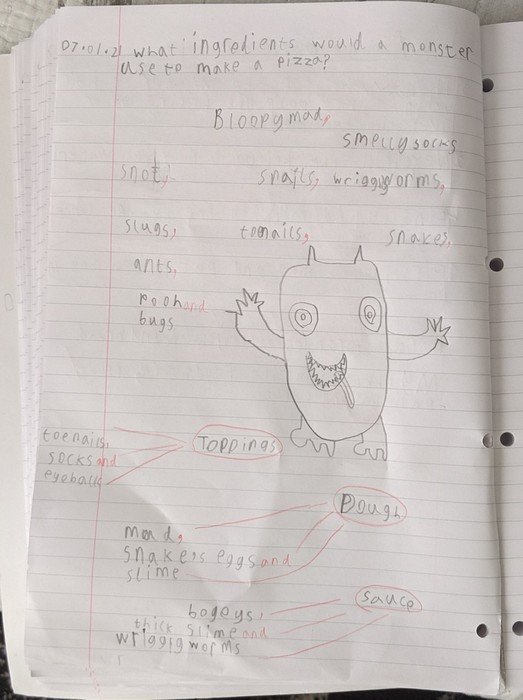 07.01.21 what ingredients would a monster
use to make a pizza?
Bloopy mad,
smelly socks
snot, snails, wriggyworms,
slugs, toenails, snakes,
ants,
pooh and
bugs
toenails,
socks and
eyeballs
Toppings
Dough
mad,
snakes eggs and
slime
sauce
bogeys,
thick slime and
wriggig worms